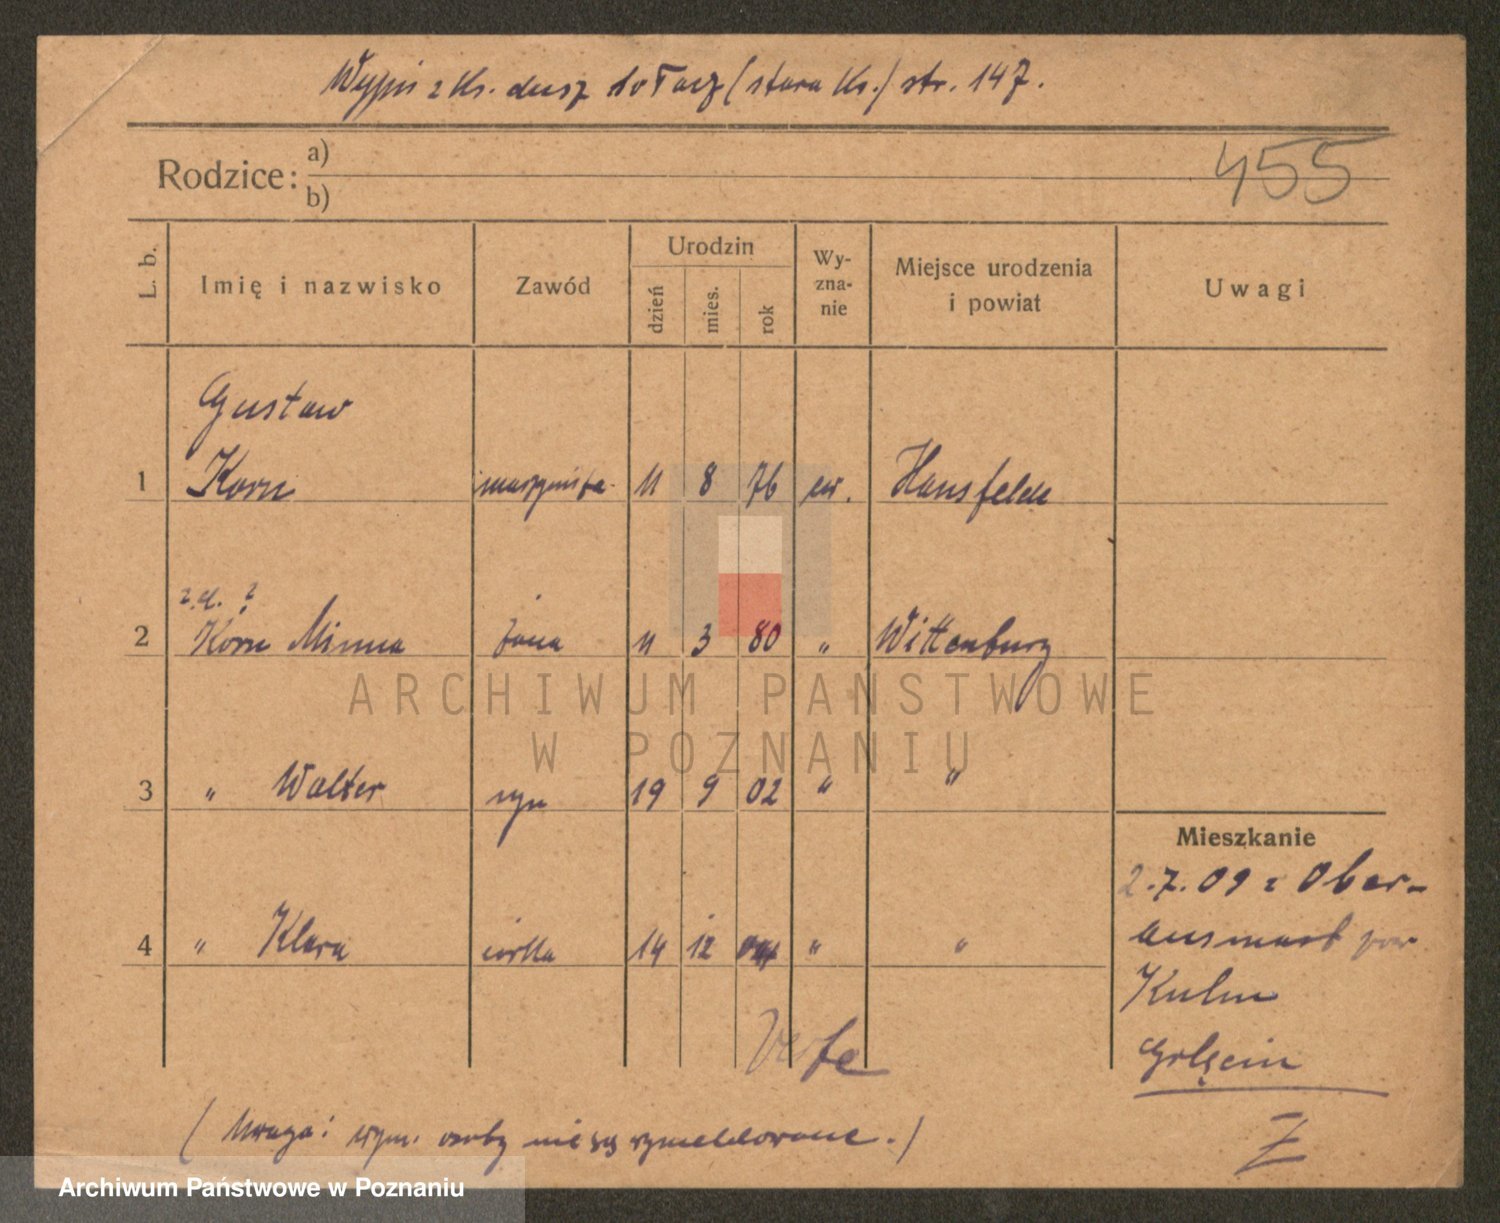 Wypis z ks. dusz Gołęcz (stara ks.) str. 147.
Rodzice: a)
b)
455
L. b. Imię i nazwisko Zawód Urodzin dzień mies. rok Wy-zna-nie Miejsce urodzenia i powiat Uwagi
Gustaw
1 Korn maszynista 11 8 76 ew. Hansfelde
z d. ?
2 Korn Minna żona 11 3 80 " Wittenburg
ARCHIWUM PAŃSTWOWE
W POZNANIU
3 " Walter syn 19 9 02 " "
Mieszkanie
2.7.09 z Ober-
4 " Klara córka 14 12 " "
ausmaß pow
Kulm
Verte
Golęcin
(Uwaga: wym. osoby nie są wymeldowane.)
Z
Archiwum Państwowe w Poznaniu